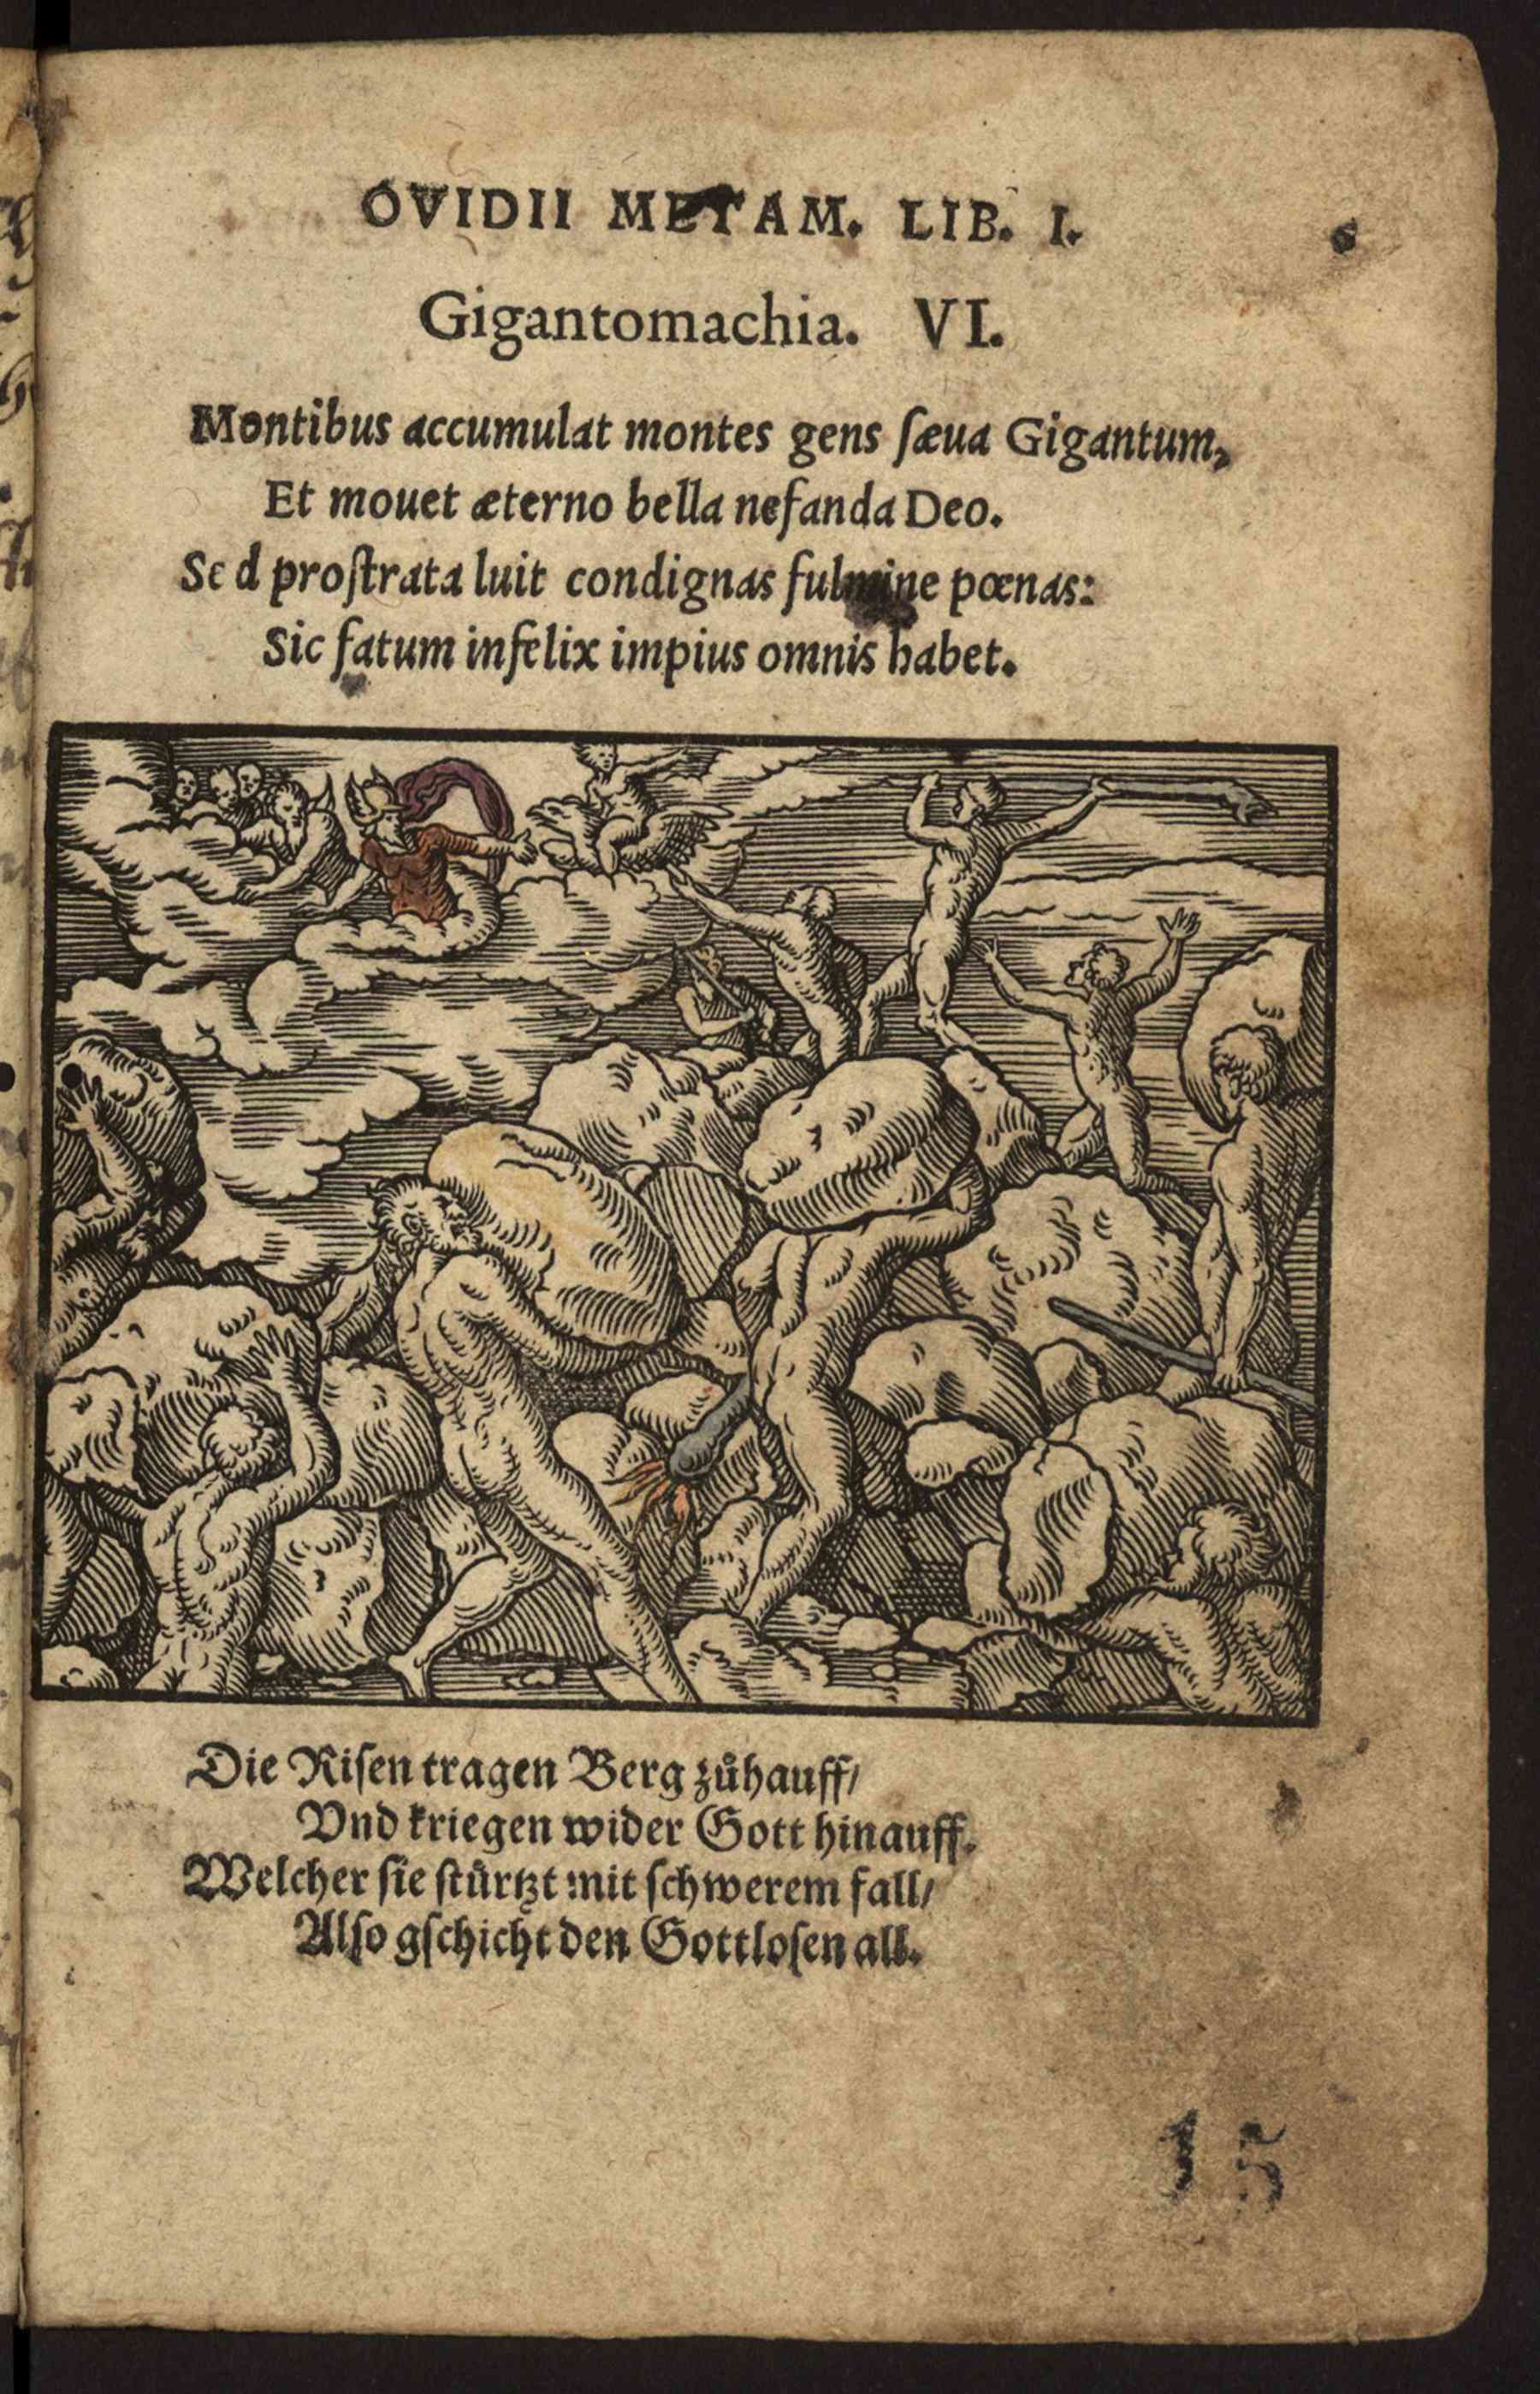 OVIDII METAM. LIB. I. 6
Gigantomachia. VI.
Montibus accumulat montes gens ſæua Gigantum,
Et mouet æterno bella nefanda Deo.
Sed proſtrata luit condignas fulmine pœnas:
Sic fatum infelix impius omnis habet.
Die Riſen tragen Berg zůhauff/
Vnd kriegen wider Gott hinauff.
Welcher ſie ſtürtzt mit ſchwerem fall/
Alſo gſchicht den Gottloſen all.
15